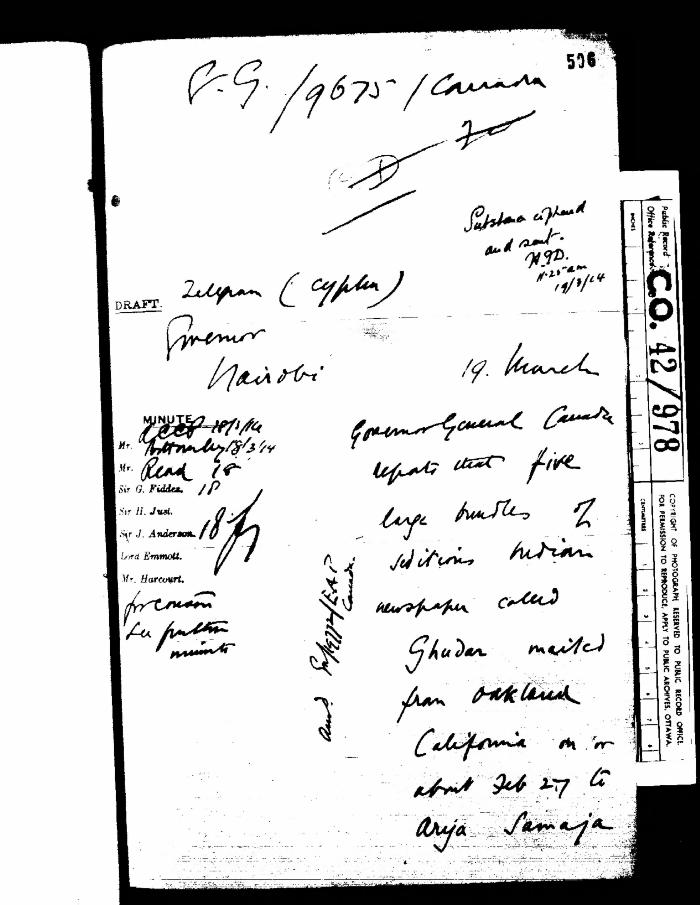 506
/9675/Canada
Substance cyphered
and sent.
11.25 am
19/3/14
DRAFT. Telegram (cypher)
Governor
Nairobi
19. March
MINUTE
18/3/14
Mr. Bottomley 18/3/14
Mr. Read 18
Sir G. Fiddes. 18
Sir H. Just.
Sir J. Anderson. 18
Lord Emmott.
Mr. Harcourt.
for conson
See further
minute
Governor General Canada
reports that five
large bundles of
seditious Indian
newspaper called
Ghadar mailed
from Oakland
California on or
about Feb 27 to
Arya Samaja
Canada.
Public Record
Office Reference:
C.O. 42/978
INCHES
CENTIMETRES
COPYRIGHT OF PHOTOGRAPH RESERVED TO PUBLIC RECORD OFFICE.
FOR PERMISSION TO REPRODUCE, APPLY TO PUBLIC ARCHIVES, OTTAWA.